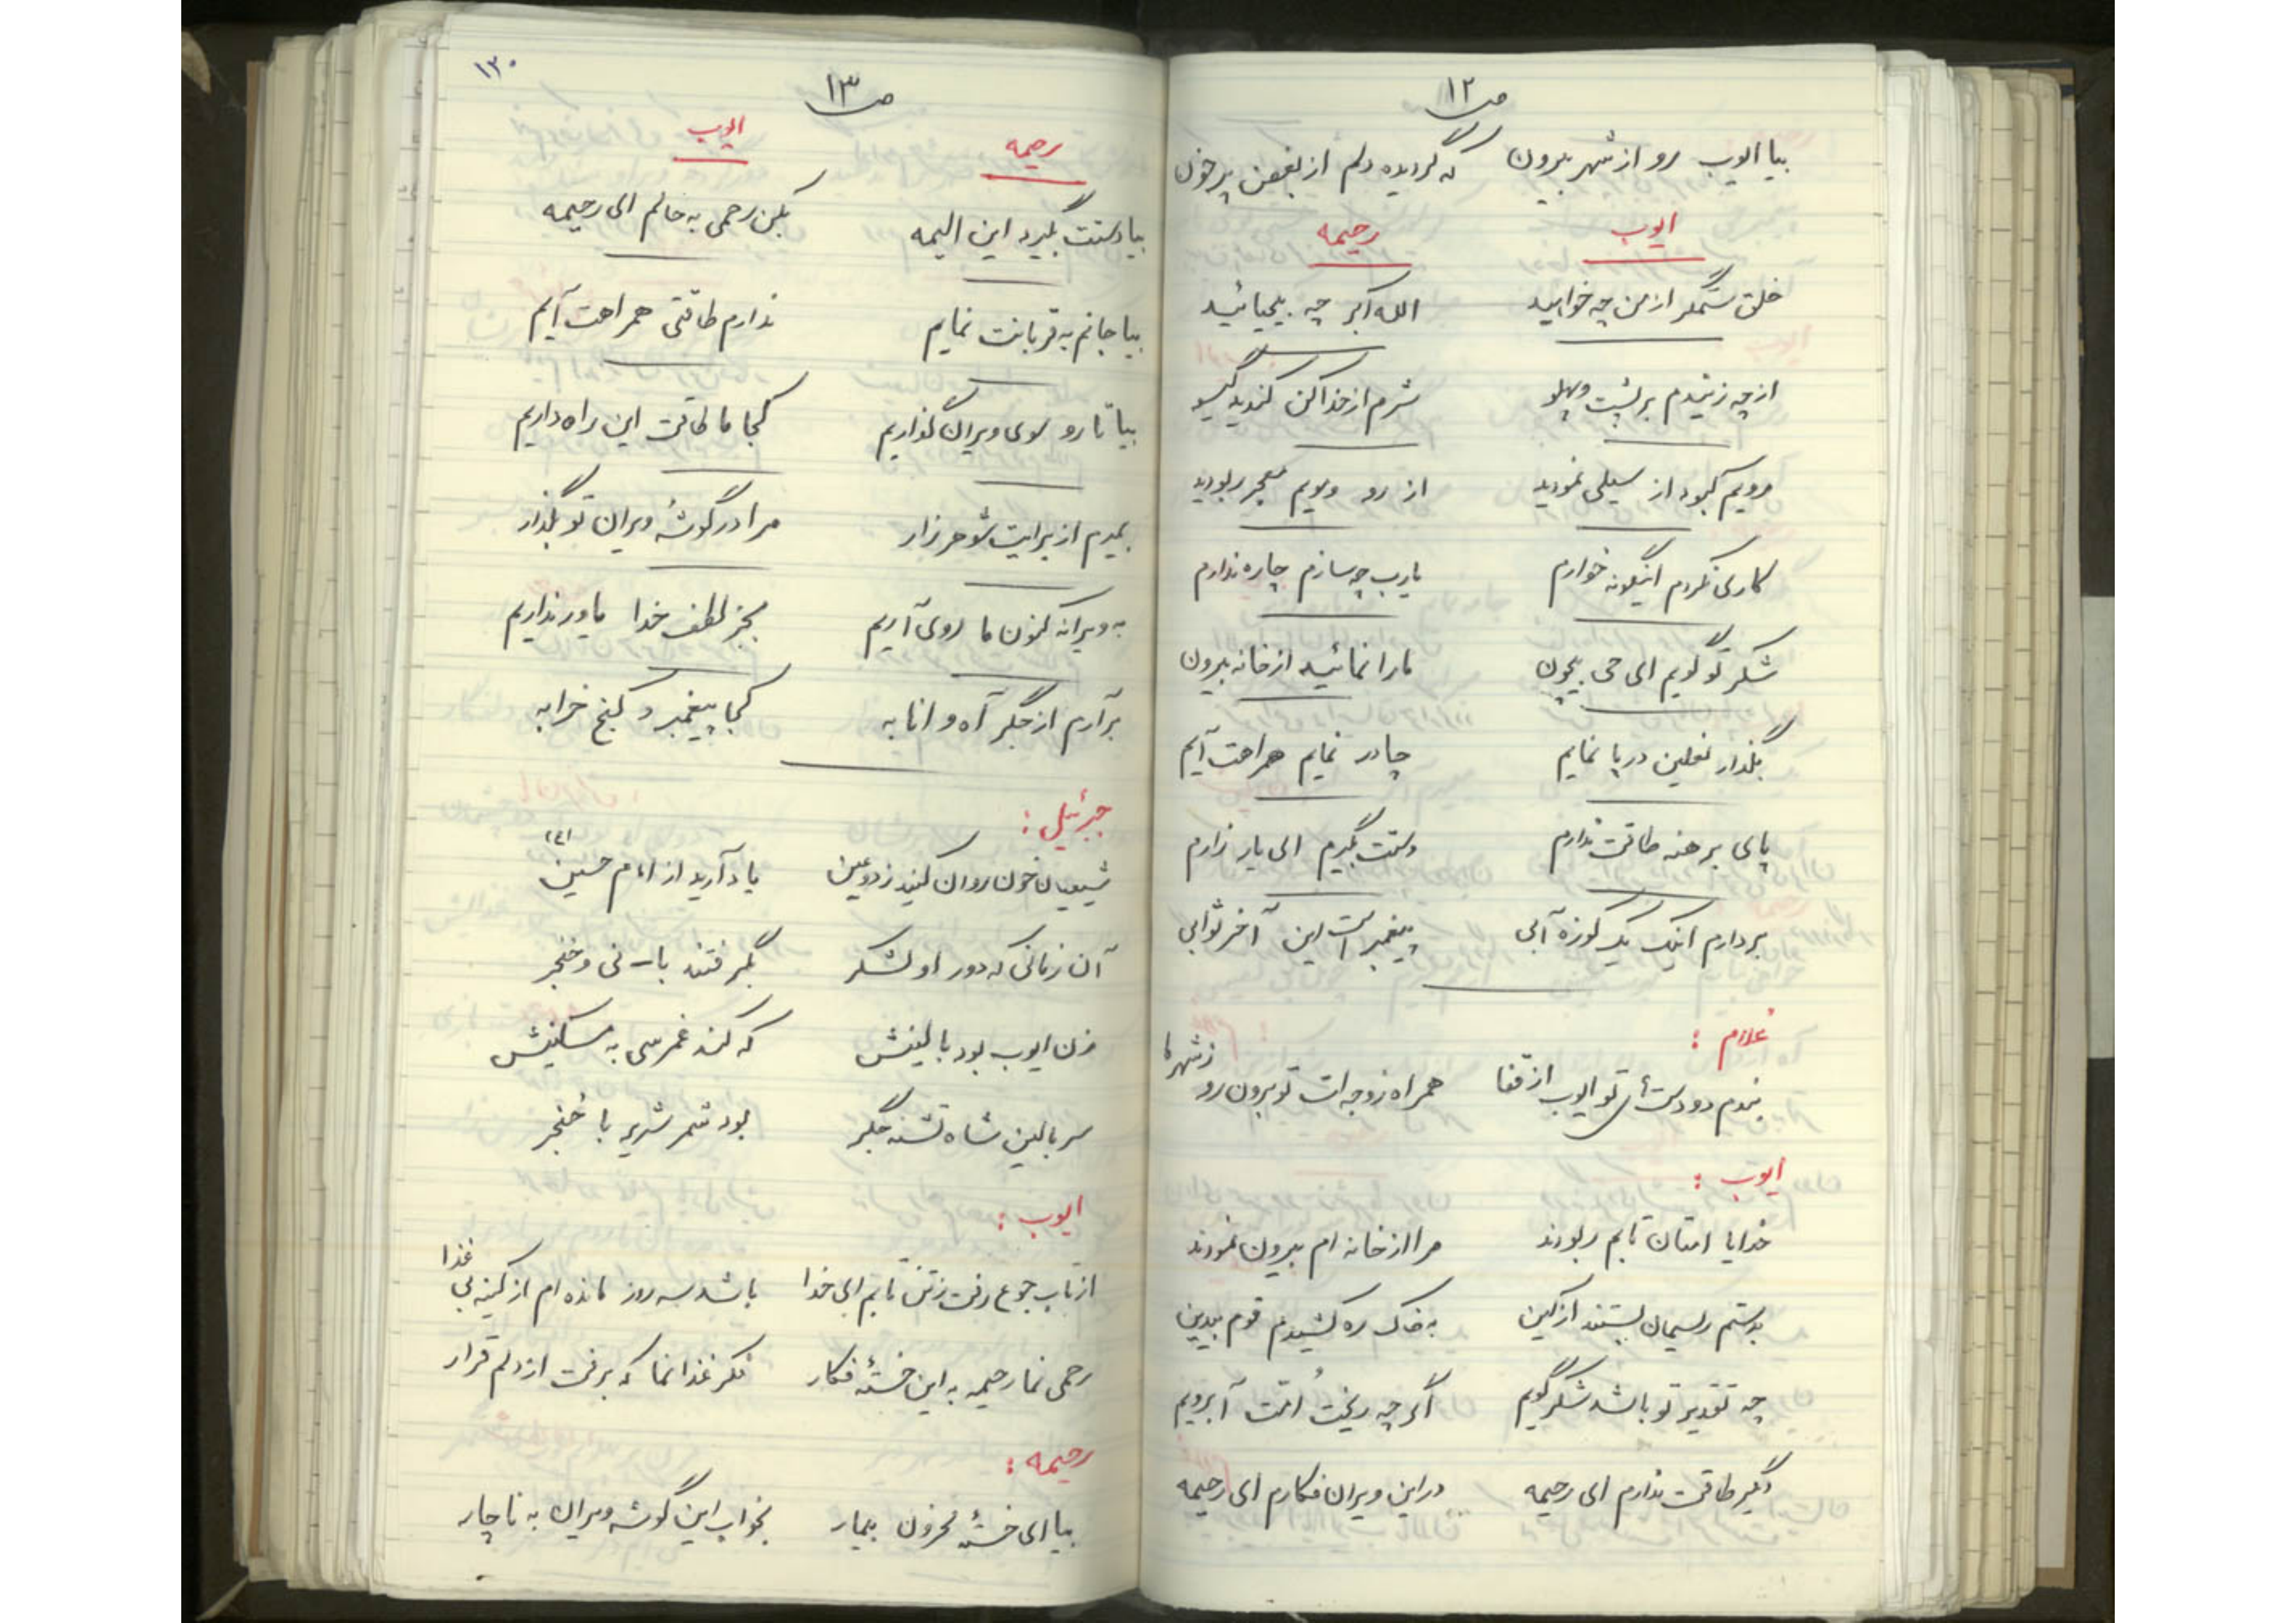 ص ۱۲
بیا ایوب رو از شهر بیرون که گردیده دلم از بغض پر خون
ایوب رحیمه
خلق ستمگر از من چه خواهید الله اکبر چه بیحیائید
از چه زنیدم بر پشت و پهلو شرم از خدا کن کندید گیسو
رویم کبود از سیلی نمودید از رو و مویم معجر ربودید
کاری نکردم اینگونه خوارم یارب چه سازم چاره ندارم
شکر تو گویم ای حی بیچون ما را نمائید از خانه بیرون
بگذار نعلین در پا نمایم چادر نمایم همراهت آیم
پای برهنه طاقت ندارم دستت بگیرم ای یار زارم
بردارم اینک یک کوزه آبی پیغمبر است این آخر ثوابی
غلام :
بندم دو دست تو ایوب از قفا همراه زوجه ات تو برون رو ز شهر ما
ایوب :
خدایا امتان تابم ربودند مرا از خانه ام بیرون نمودند
بدستم ریسمان بستند از کین به خاک ره کشیدم قوم بیدین
چه تقدیر تو باشد شکر گویم اگر چه ریخت امت آبرویم
دگر طاقت ندارم ای رحیمه در این ویران فکارم ای رحیمه
۱۳۰
ص ۱۳
رحیمه ایوب
بیا دستت بگیرد این الیمه بکن رحمی به حالم ای رحیمه
بیا جانم به قربانت نمایم ندارم طاقتی همراهت آیم
بیا تا رو سوی ویران گذاریم کجا ما طاقت این راه داریم
بمیرم از برایت شوهر زار مرا در گوشۀ ویران تو بگذار
به ویرانه کنون ما روی آریم بجز لطف خدا یاور نداریم
برآرم از جگر آه و انابه کجا پیغمبر و کنج خرابه
جبرئیل :
شیعیان خون روان کنید ز دو عین یاد آرید از امام حسین (ع)
آن زمانی که دور او لشکر بگرفتند با سنی و خنجر
زن ایوب بود بالینش که کند غمرسی به مسکینش
سر بالین شاه تشنه جگر بود شمر شریر با خنجر
ایوب :
از تاب جوع رفت ز تن تابم ای خدا باشد سه روز مانده ام از کینه بی غذا
رحمی نما رحیمه به این خستۀ فکار فکر غذا نما که برفت از دلم قرار
رحیمه :
بیا ای خستۀ محزون بیمار بخواب این گوشه ویران به ناچار